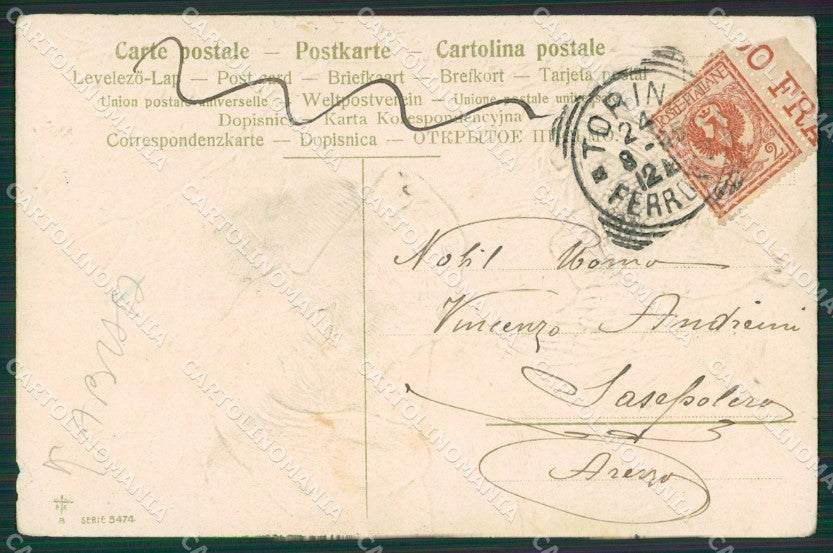 Carte postale — Postkarte — Cartolina postale
Levelező-Lap — Post card — Briefkaart — Brefkort — Tarjeta postal
Union postale universelle — Weltpostverein — Unione postale universale
Dopisnice — Karta Korespondencyjna
Correspondenzkarte — Dopisnica — ОТКРЫТОЕ ПИСЬМО
O FRA
POSTE ITALIANE
2
TORINO
2
3
12
FERROVIA
Nobil Uomo
Vincenzo Andreini
Sasepolcro
Arezzo
8 SERIE 5474
CARTOLINOMANIA